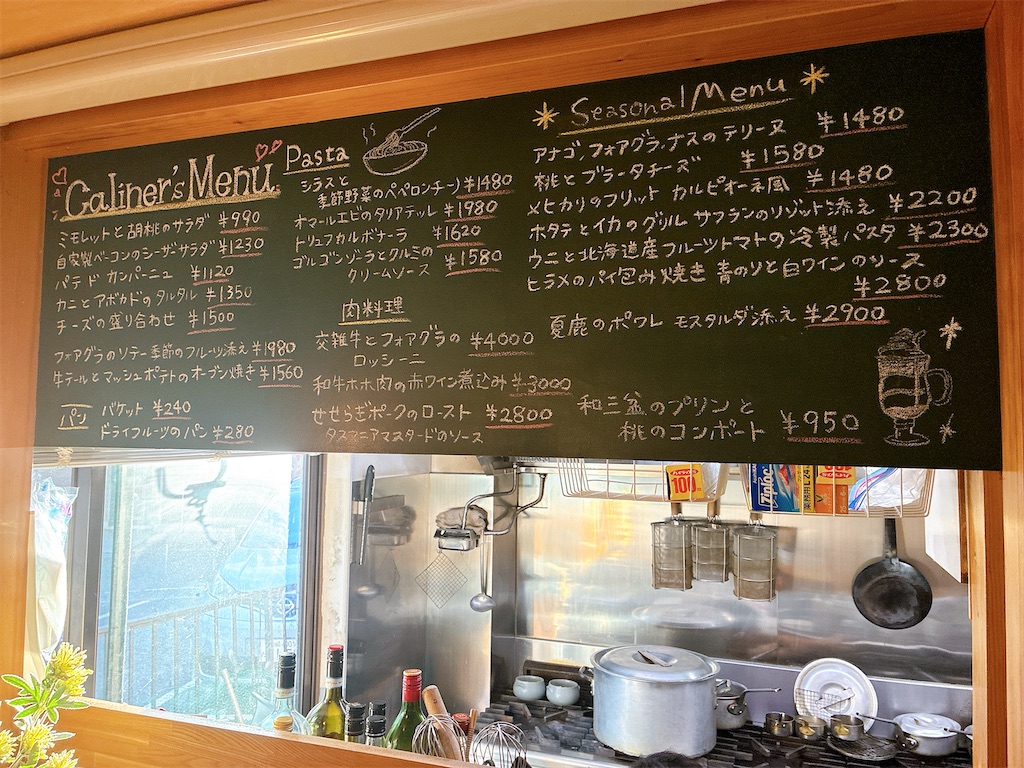 Galiner's Menu
ミモレットと胡桃のサラダ ¥990
自家製ベーコンのシーザサラダ ¥1230
パテ ド カンパーニュ ¥1120
カニとアボカドのタルタル ¥1350
チーズの盛り合わせ ¥1500
フォアグラのソテー季節のフルーツ添え ¥1980
牛テールとマッシュポテトのオーブン焼き ¥1560
パン バケット ¥240
ドライフルーツのパン ¥280
Pasta
シラスと
季節野菜のペペロンチーノ ¥1480
オマールエビのタリアテッレ ¥1980
トリュフカルボナーラ ¥1620
ゴルゴンゾーラとクルミの
クリームソース ¥1580
肉料理
交雑牛とフォアグラの ¥4000
ロッシーニ
和牛ホホ肉の赤ワイン煮込み ¥3000
せせらぎポークのロースト ¥2800
タスマニアマスタードのソース
Seasonal Menu
アナゴ、フォアグラ、ナスのテリーヌ ¥1480
桃とブラータチーズ ¥1580
メヒカリのフリット カルピオーネ風 ¥1480
ホタテとイカのグリル サフランのリゾット添え ¥2200
ウニと北海道産フルーツトマトの冷製パスタ ¥2300
ヒラメのパイ包み焼き 青のりと白ワインのソース
¥2800
夏鹿のポワレ モスタルダ添え ¥2900
和三盆のプリンと
桃のコンポート ¥950
100
Ziploc